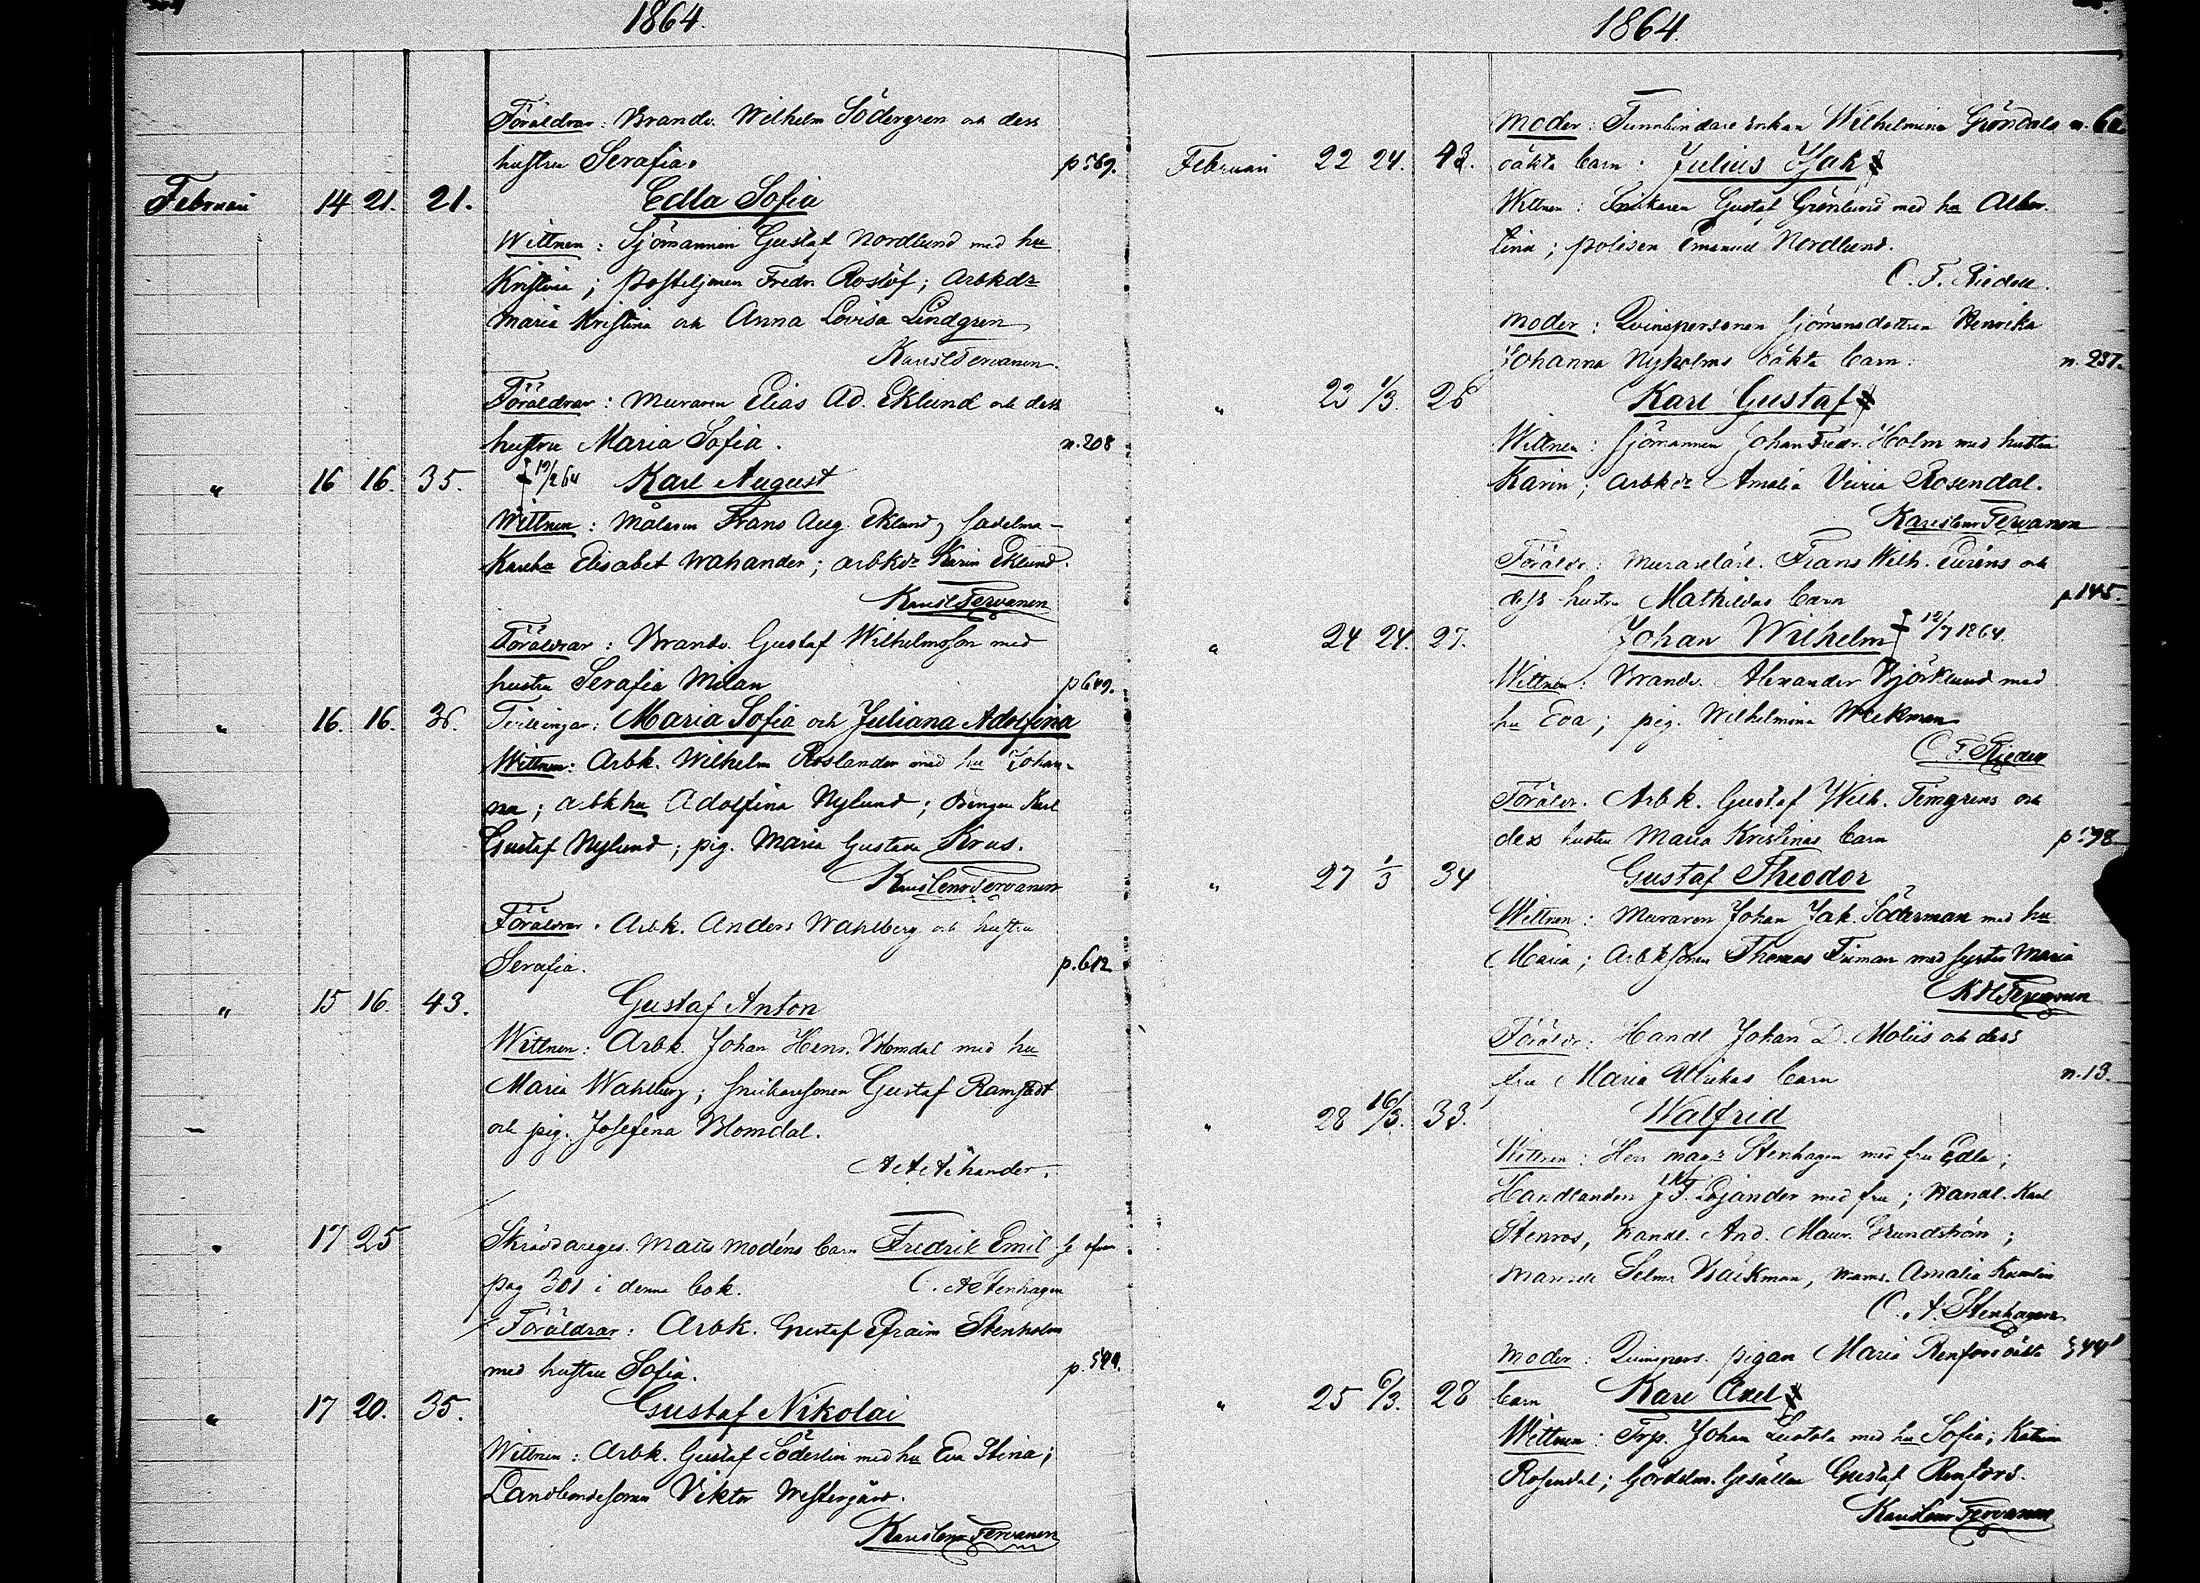 1864.
Föräldrar: Brandv. Wilhelm Södergren och dess
hustru Serafia. p 569.
Februari 14 21. 21. Edla Sofia
Wittnen: Sjömannen Gustaf Nordlund med hu
Kristina; Postiljonen Fredr. Roslöf; Arbkdr
Maria Kristina och Anna Lovisa Lindgren
Föräldrar: Muraren Elias Ad. Eklund och dess
hustru Maria Sofia. n. 208
" 16 16. 35. Karl August
Wittnen: Målaren Frans Aug. Eklund, sadelma-
Elisabet Wahander; arbkdr Karin Eklund.
Föräldrar: Brandv. Gustaf Wilhelmsson med
hustru Serafia Milan p 649.
" 16. 16. 36. Tvillingar: Maria Sofia och Juliana Adolfina
Wittnen: Arbk. Wilhelm Roslander med hu Johan-
na; arbk hu Adolfina Nylund; Karl
Gustaf Nylund; pig. Maria Gustava Krus.
Föräldrar. Arbk. Anders Wahlberg och hustru
Serafia. p. 612
" 15 16. 43. Gustaf Anton
Wittnen: Arbk. Johan Henr. Blomdal med hu
Maria Wahlberg; Snickaresonen Gustaf Ramstedt
och pig. Josefina Blomdal.
" 17 25 Skräddareges. Matts Modéns barn Fredrik Emil se
pag 301 i denna bok. C. A Stenhagen
Föräldrar: Arbk. Gustaf Efraim Stenholm
med hustru Sofia. p. 544.
" 17 20. 35. Gustaf Nikolai
Wittnen: Arbk. Gustaf Söderlin med hu Eva Stina;
Landbondesonen Viktor Westergård.
1864.
Moder: Tunnbindare Enkan Wilhelmina Gröndals
Februari 22 24. 43. oäkta barn: Julius Isak
Wittnen: Snikaren Gustaf Grönlund med hu Alber-
tina; polisen Emanuel Nordlund.
Moder: Qvinspersonen Sjömansdottren Henrika
Johanna Nyholms oäkta barn: n. 237.
" 23 1/3. 26 Karl Gustaf
Wittnen: Sjömannen Johan Fredr. Holm med hustru
Karin; arbkdr Amalia Rosendal.
Föräldr: Murarelärl. Frans Wilh. och
dess hustru Mathildas barn p 145
" 24 24. 27. Johan Wilhelm † 12/7 1864.
Wittnen: Brandv. Alexander Björklund med
hu Eva; pig. Wilhelmina Wickman
Föräldr. Arbk. Gustaf Wilh. Timgrens och
dess hustru Maria Kristinas barn
" 27 1/3 34 Gustaf Theodor
Wittnen: Muraren Johan Jak. Söderman med hu
Maria; Arbk sonen Thomas Timan med syster Maria
Föräldr: Handl Johan D. Moliis och dess
fru Maria Ulrikas barn n. 13.
" 28 16/3. 33. Walfrid
Wittnen: Herr magr Stenhagen med fru Edla;
Handlanden med fru; Handl. Karl
Stenros, handl. And. Maur. Grundström;
Mamsell Selma Bäckman, Mams. Amalia
C. A. Stenhagen
Moder: Qvinspers. pigan Maria Renfors oäkta
" 25 6/3. 28 barn Karl Axel
Wittnen: Johan med hu Sofia; Katrina
Rosendal; Gesällen Gustaf Renfors.